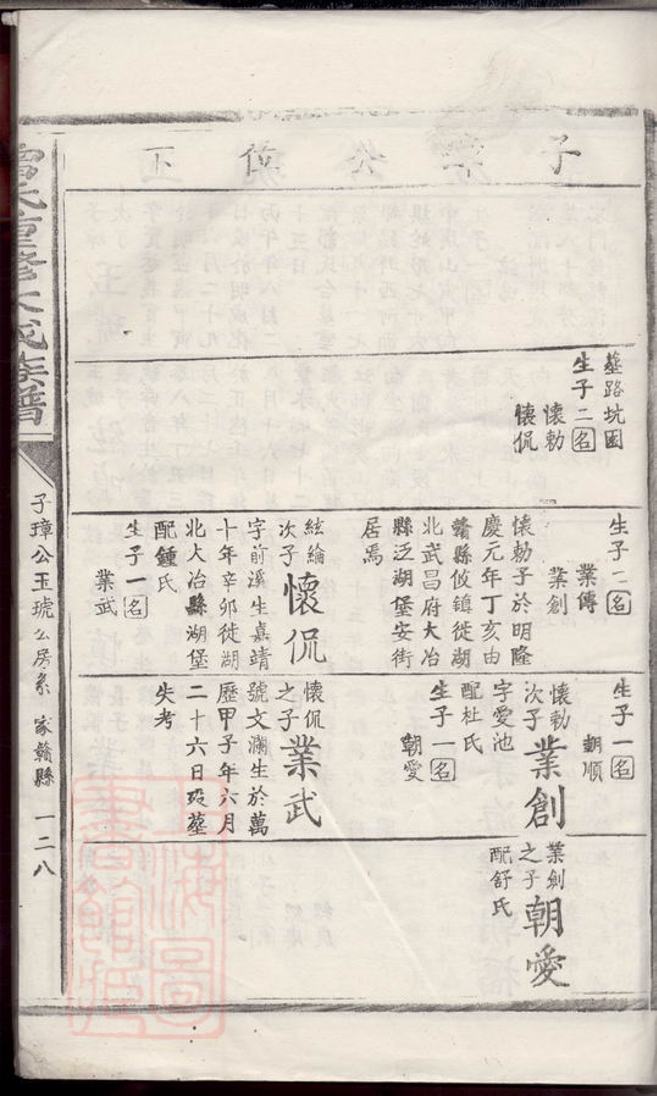 子璋公位下
墓路坑圍
生子二名
懷勅
懷侃
生子二名
業傳
業創
懷勅子於明隆
慶元年丁亥由
贛縣攸鎮徙湖
北武昌府大冶
縣泛湖堡安街
居焉
絃綸
次子
懷侃
字前溪生嘉靖
十年辛卯徙湖
北大冶縣湖堡
配鍾氏
生子一名
業武
生子一名
朝順
懷勅
次子
業創
字愛池
配杜氏
生子一名
朝愛
懷侃
之子
業武
號文瀾生於萬
歷甲子年六月
二十六日歿墓
失考
業創
之子
朝愛
配舒氏
氏重修大成族譜
子璋公玉琥公房系
家贛縣
一二八
上海圖書館藏